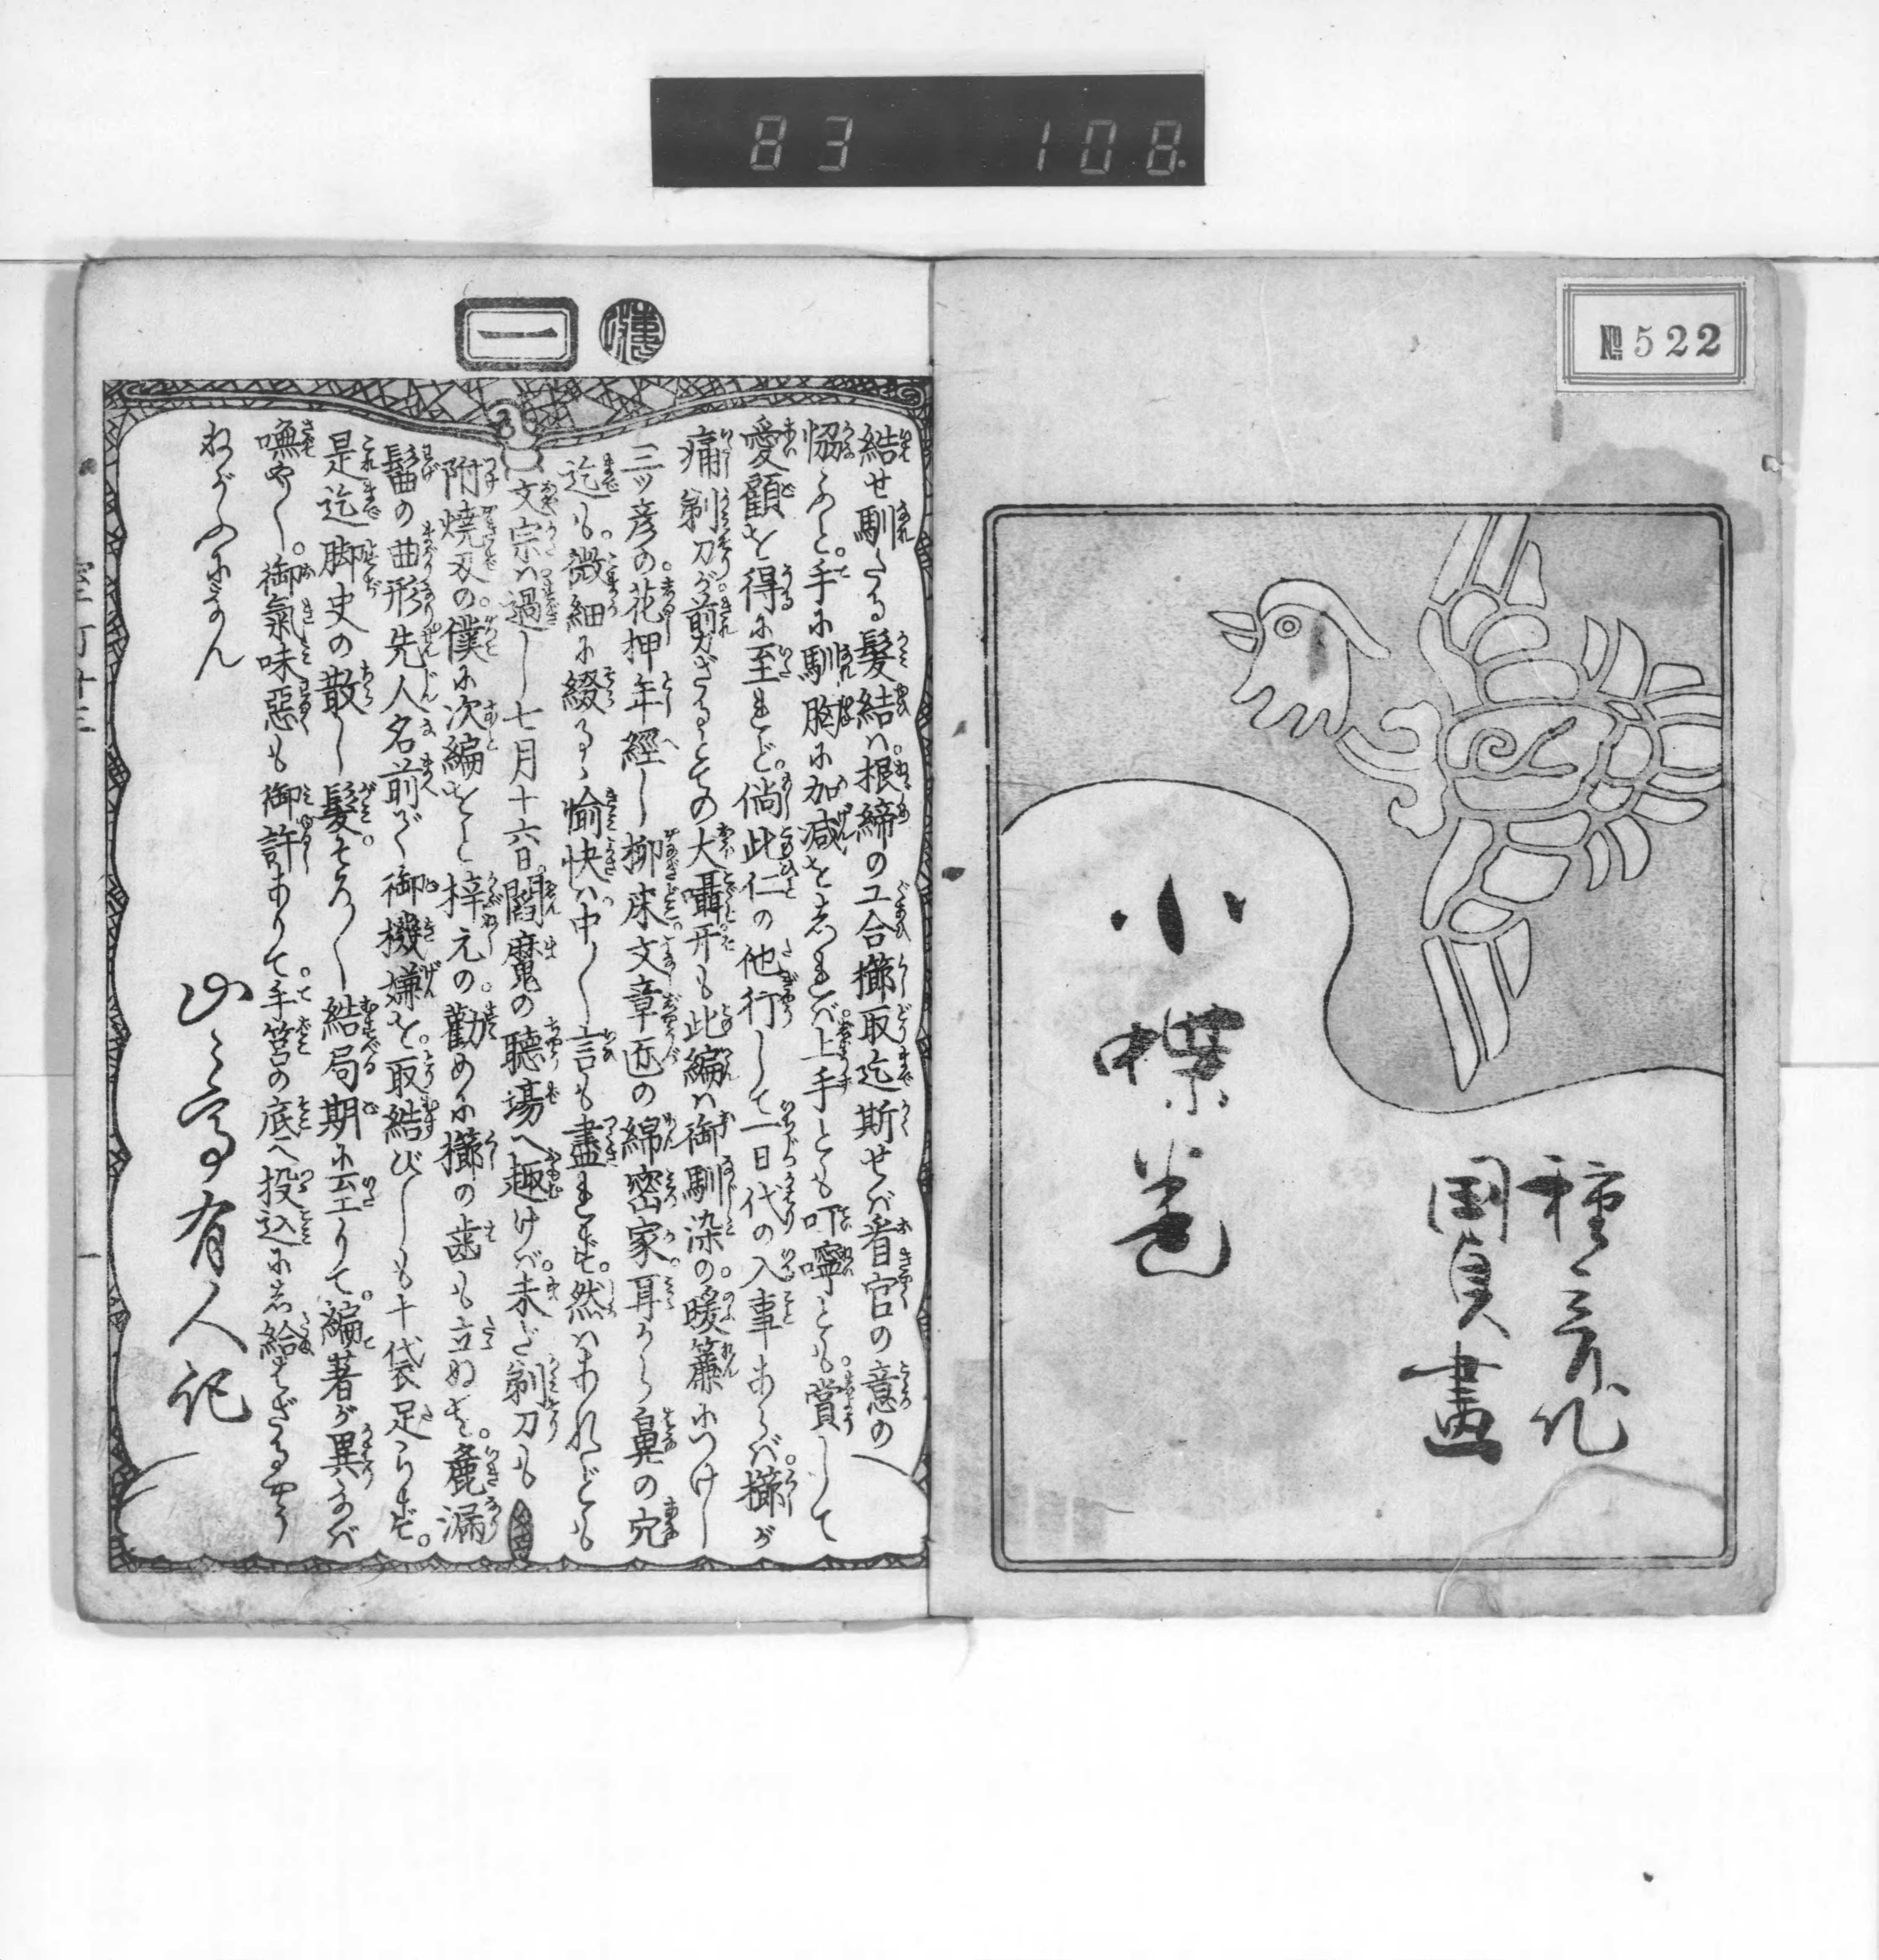 83 108
№ 522
種彦作
国貞画
小蝶巻
一
結せ馴たる髪結ハ。根締の工合櫛取迄斯せバ看官の意の
恊ふと。手に馴胸に加減をしれバ。上手とも叮嚀とも。賞して
愛顧を得に至れど。倘此仁の他行して一日代の入事あらバ。櫛が
痛剃刀が前方ざるとての大聶开も此編ハ御馴染の。暖簾につけし
三ッ彦の。花押年經し柳床。文章匠の綿密家。耳から鼻の穴
迄も。微細に綴るゝ愉快ハ。中〳〵言も盡れず。然ハあれども
文宗ハ過し七月十六日。閻魔の聴場へ趣けバ。未だ剃刀も
附焼刃の。僕に次編をと梓元の。勸めに櫛の歯も立ぬを。麁漏
髷の曲形先人名前で御機嫌を。取結びしも十袋足らず。
是迄脚史の散し髪。そろ〳〵結局期に云エりて。編者が異なバ
嘸や〳〵。御氣味惡も御許ありて。手筥の底へ投込に
ねがふになん
山々亭有人記